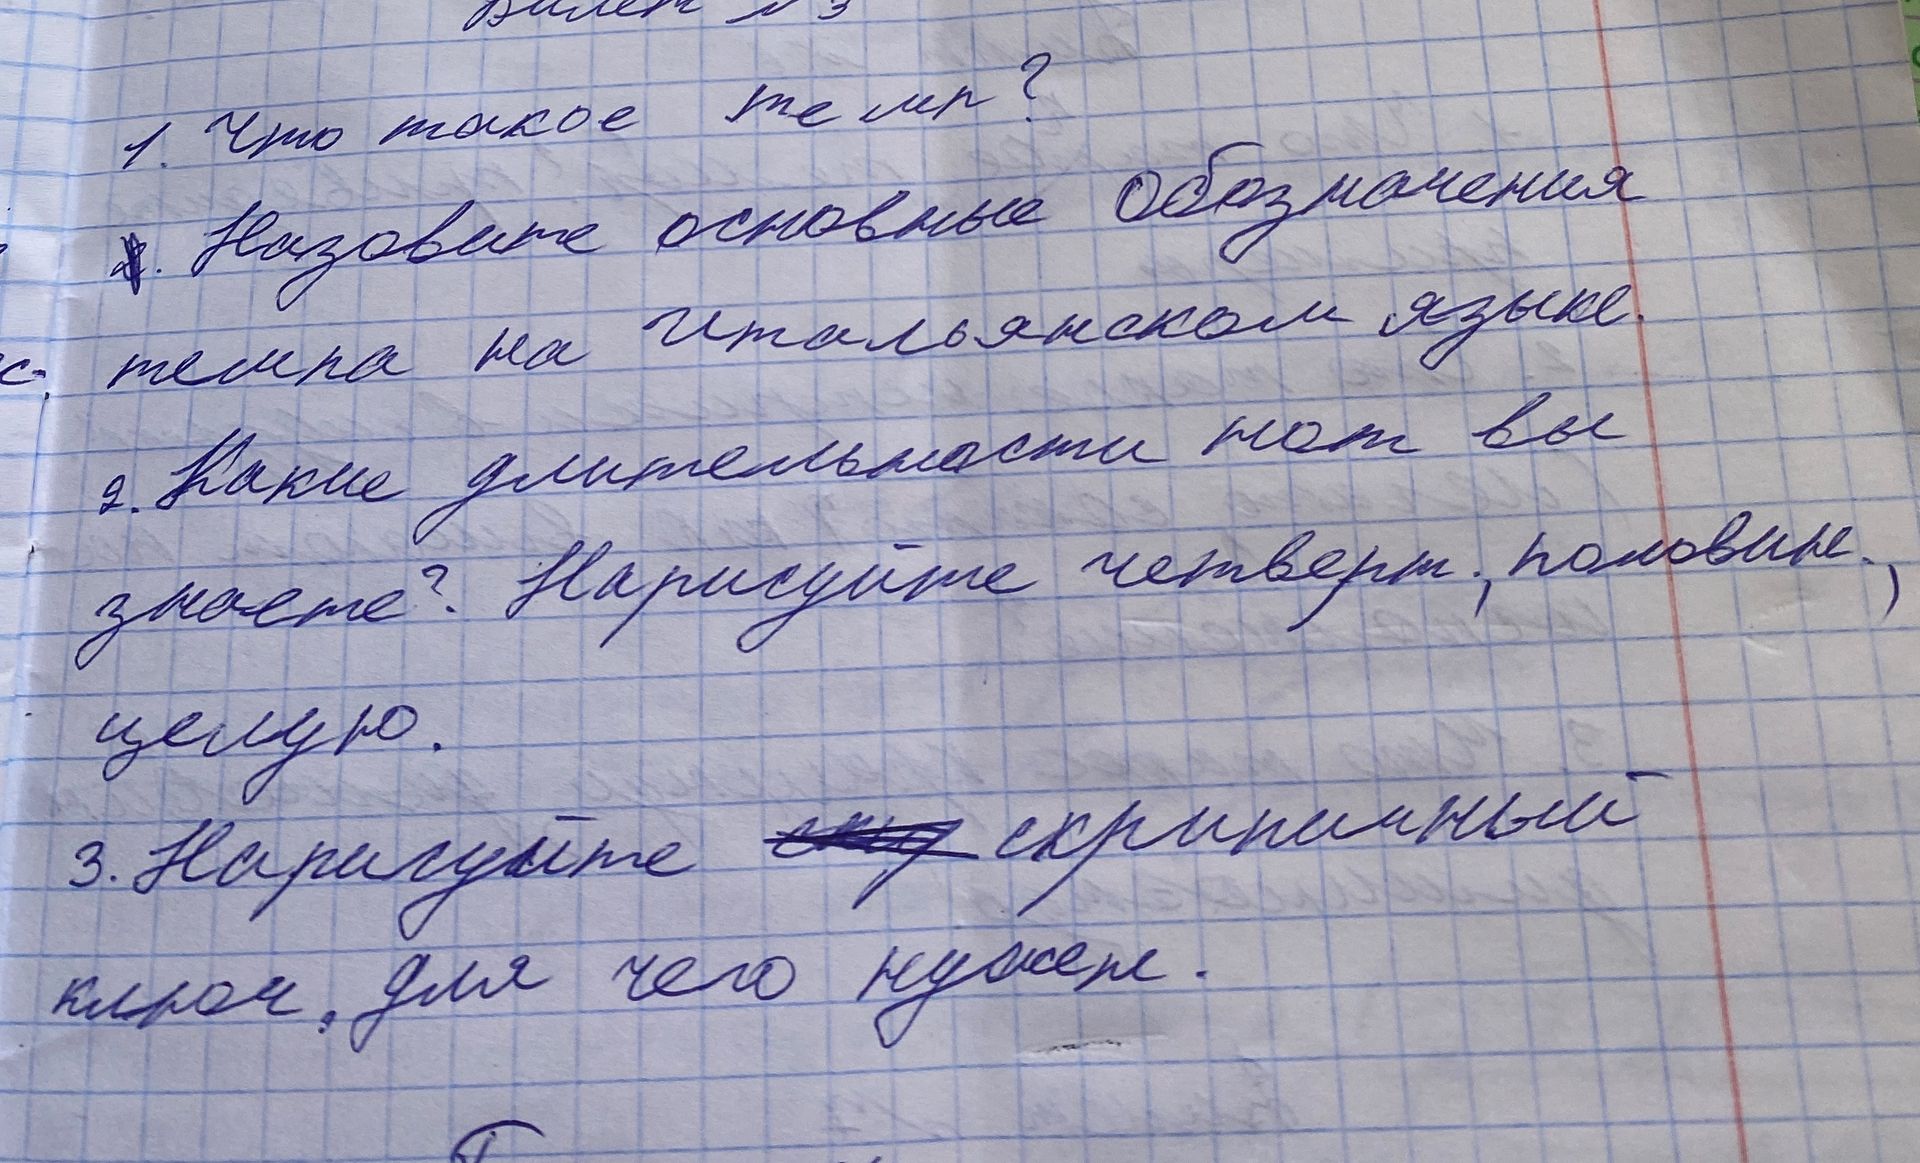 Билет №3
1. Что такое темп?
Назовите основные обозначения
темпа на итальянском языке.
2. Какие длительности нот вы
знаете? Нарисуйте четверт., половин.,
целую.
3. Нарисуйте скрипичный
ключ, для чего нужен.